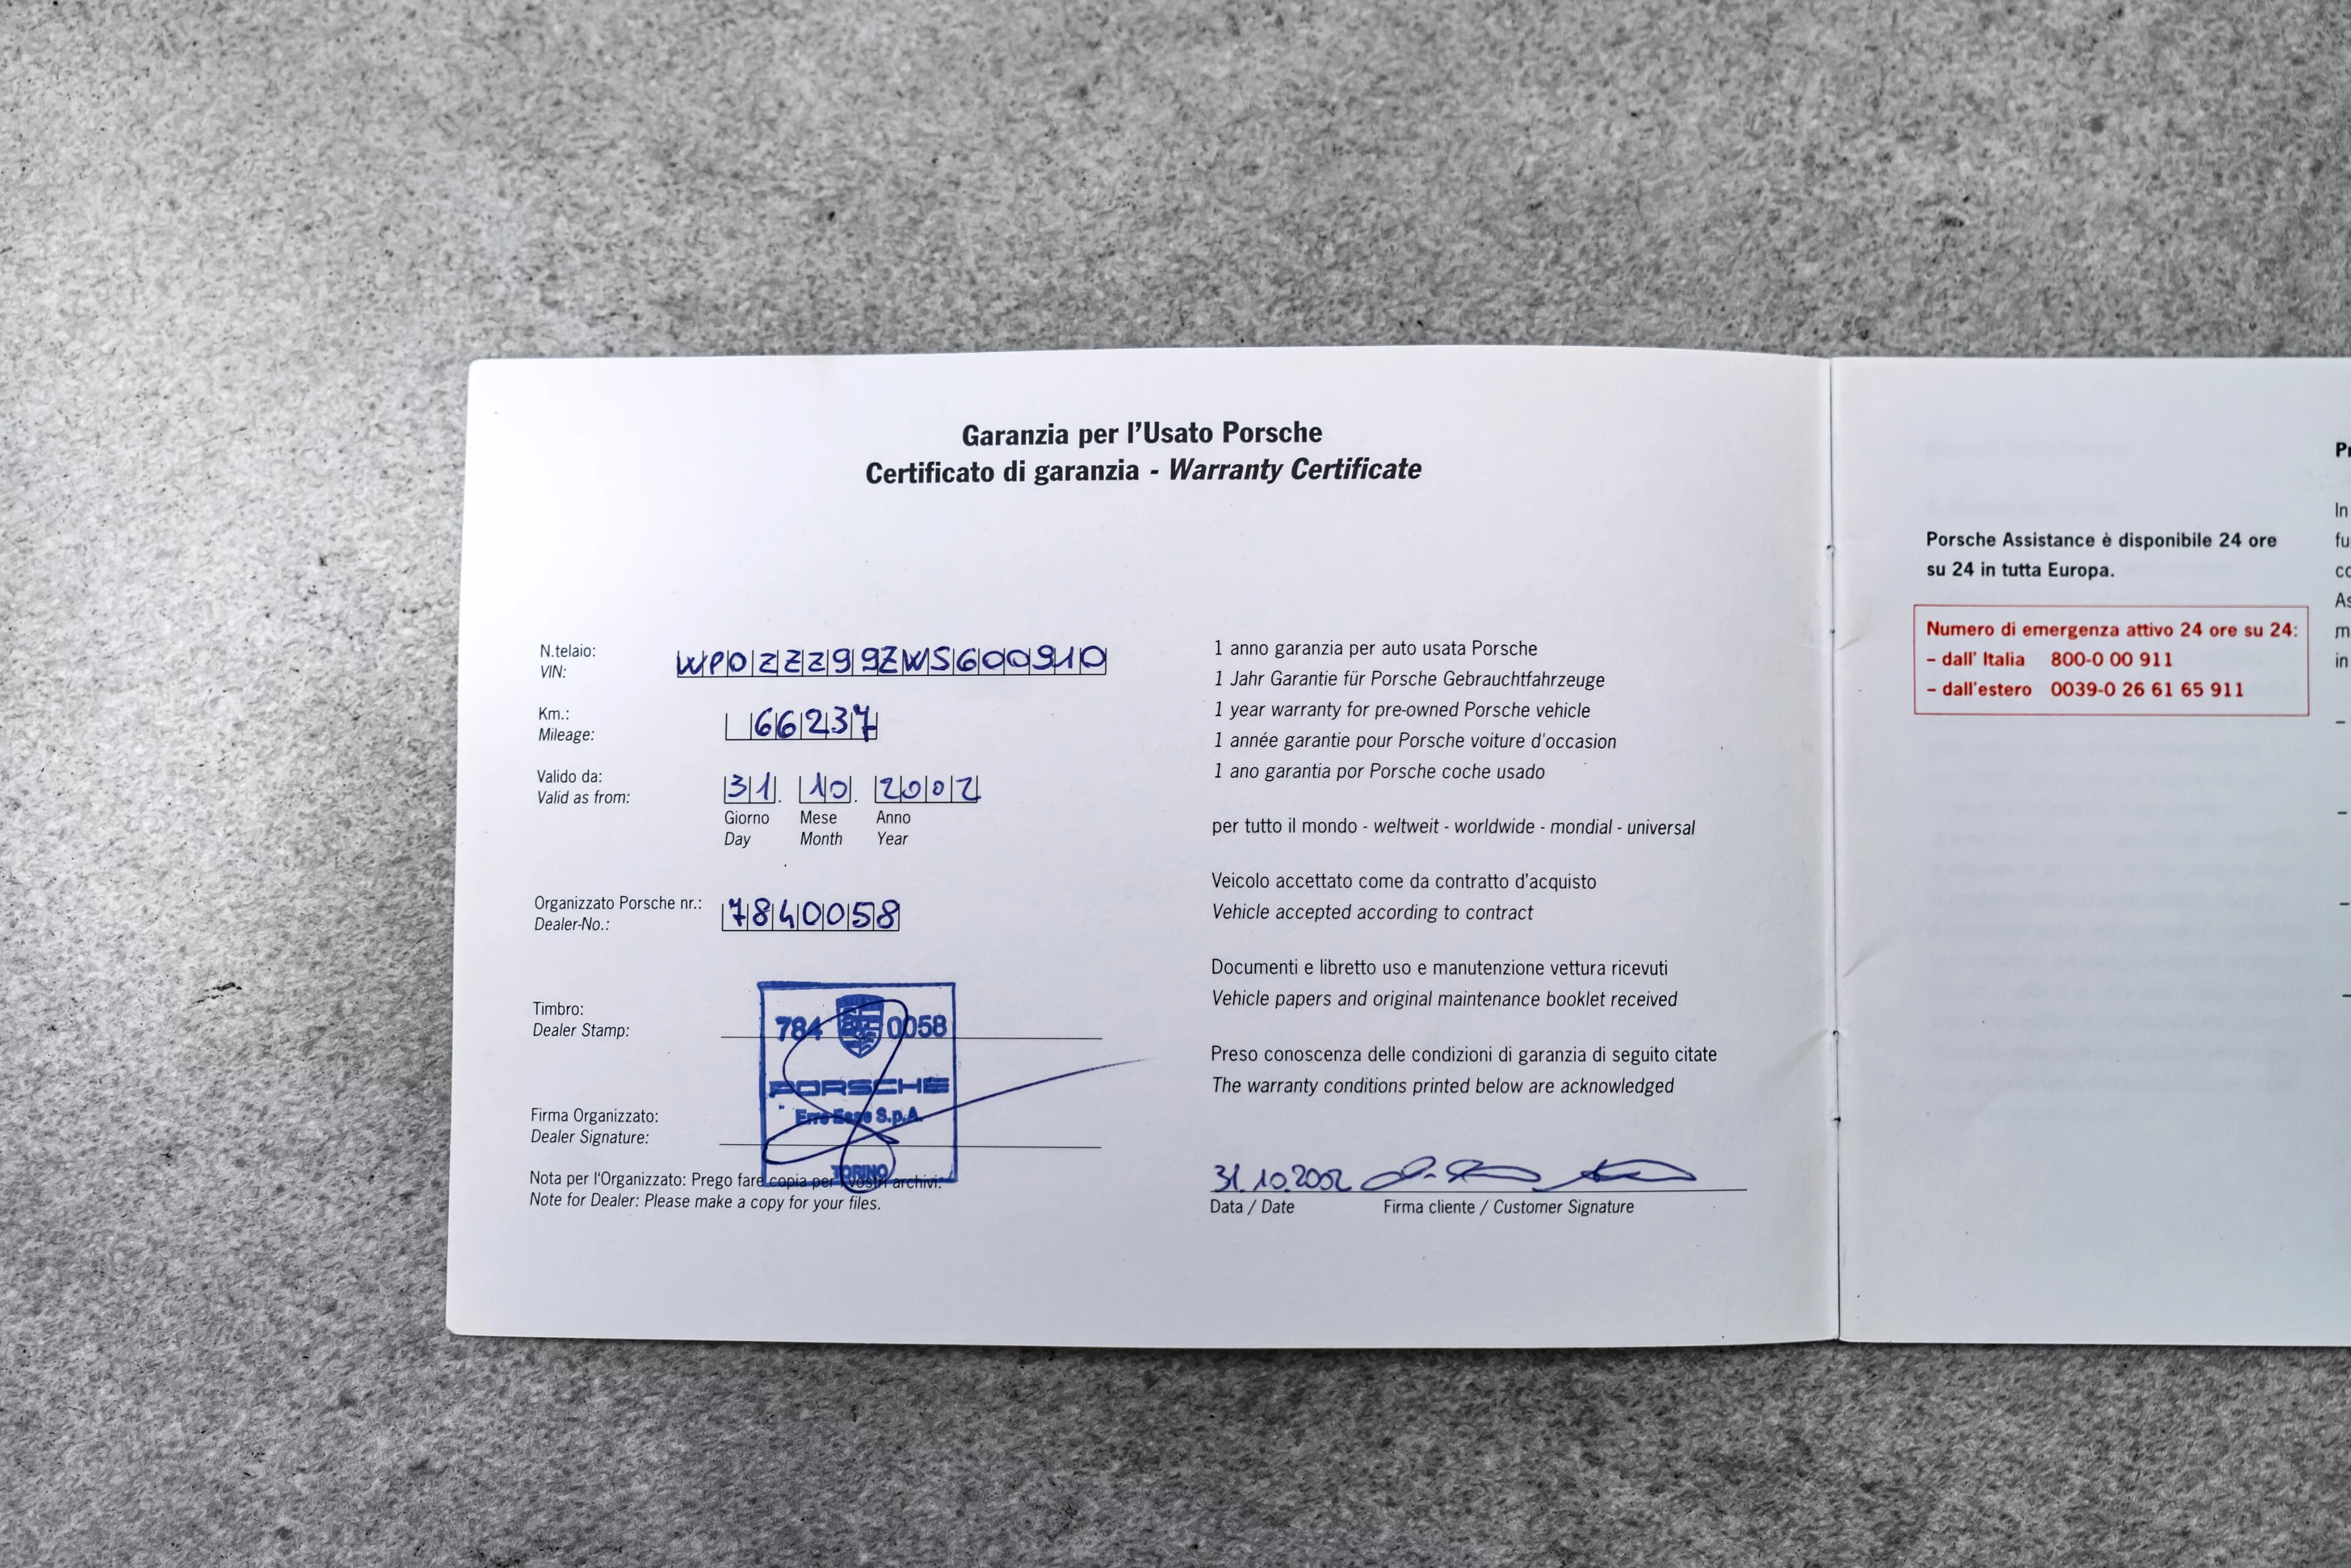 Garanzia per l'Usato Porsche
Certificato di garanzia - Warranty Certificate
N.telaio:
VIN:
WP0ZZZ99ZWS600910
Km.:
Mileage:
66237
Valido da:
Valid as from:
31. 10. 2002
Giorno Mese Anno
Day Month Year
Organizzato Porsche nr.:
Dealer-No.:
7840058
Timbro:
Dealer Stamp:
784 0058
PORSCHE
Erre Esse S.p.A.
TORINO
Firma Organizzato:
Dealer Signature:
Nota per l'Organizzato: Prego fare copia per i vostri archivi.
Note for Dealer: Please make a copy for your files.
1 anno garanzia per auto usata Porsche
1 Jahr Garantie für Porsche Gebrauchtfahrzeuge
1 year warranty for pre-owned Porsche vehicle
1 année garantie pour Porsche voiture d'occasion
1 ano garantia por Porsche coche usado
per tutto il mondo - weltweit - worldwide - mondial - universal
Veicolo accettato come da contratto d'acquisto
Vehicle accepted according to contract
Documenti e libretto uso e manutenzione vettura ricevuti
Vehicle papers and original maintenance booklet received
Preso conoscenza delle condizioni di garanzia di seguito citate
The warranty conditions printed below are acknowledged
31.10.2002
Data / Date Firma cliente / Customer Signature
Porsche Assistance è disponibile 24 ore
su 24 in tutta Europa.
Numero di emergenza attivo 24 ore su 24:
– dall' Italia 800-0 00 911
– dall'estero 0039-0 26 61 65 911
In
in